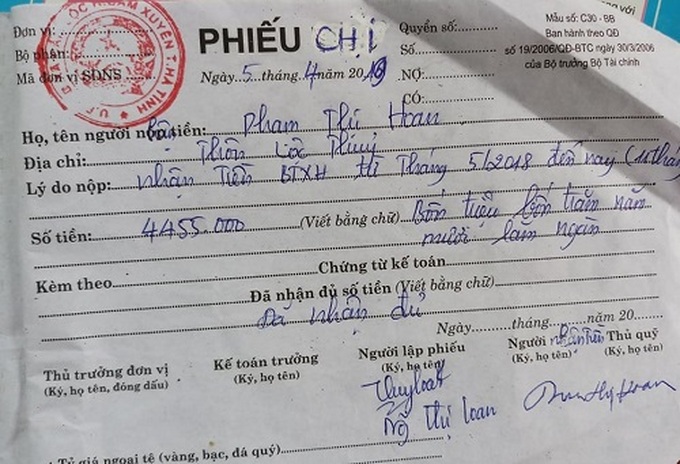 Đơn vị:
Bộ phận:
Mã đơn vị SDNS
LỘC
CẨM XUYÊN T.HÀ TĨNH
PHIẾU CHI
Ngày 5 tháng 4 năm 2019
Quyển số:
Số
NỢ:
CÓ:
Mẫu số: C30 - BB
Ban hành theo QĐ
số 19/2006/QĐ-BTC ngày 30/3/2006
của Bộ trưởng Bộ Tài chính
với
Họ, tên người nộp tiền: Phạm Thị Hoan
Địa chỉ: Thôn Lộc Thuỷ
Lý do nộp: nhận Tiền BTXH từ Tháng 5/2018 đến nay (11 thá
Số tiền: 4455.000 (Viết bằng chữ) Bốn triệu bốn trăm năm
mươi lăm ngàn
Kèm theo Chứng từ kế toán
Đã nhận đủ số tiền (Viết bằng chữ)
Đã nhận đủ
Ngày tháng năm 20
Thủ trưởng đơn vị Kế toán trưởng Người lập phiếu Người nhận tiền Thủ quỹ
(Ký, họ tên, đóng dấu) (Ký, họ tên) (Ký, họ tên) (Ký, họ tên) (Ký, họ tên)
Thị Loan
Hoan
Tỷ giá ngoại tệ (vàng, bạc, đá quý)